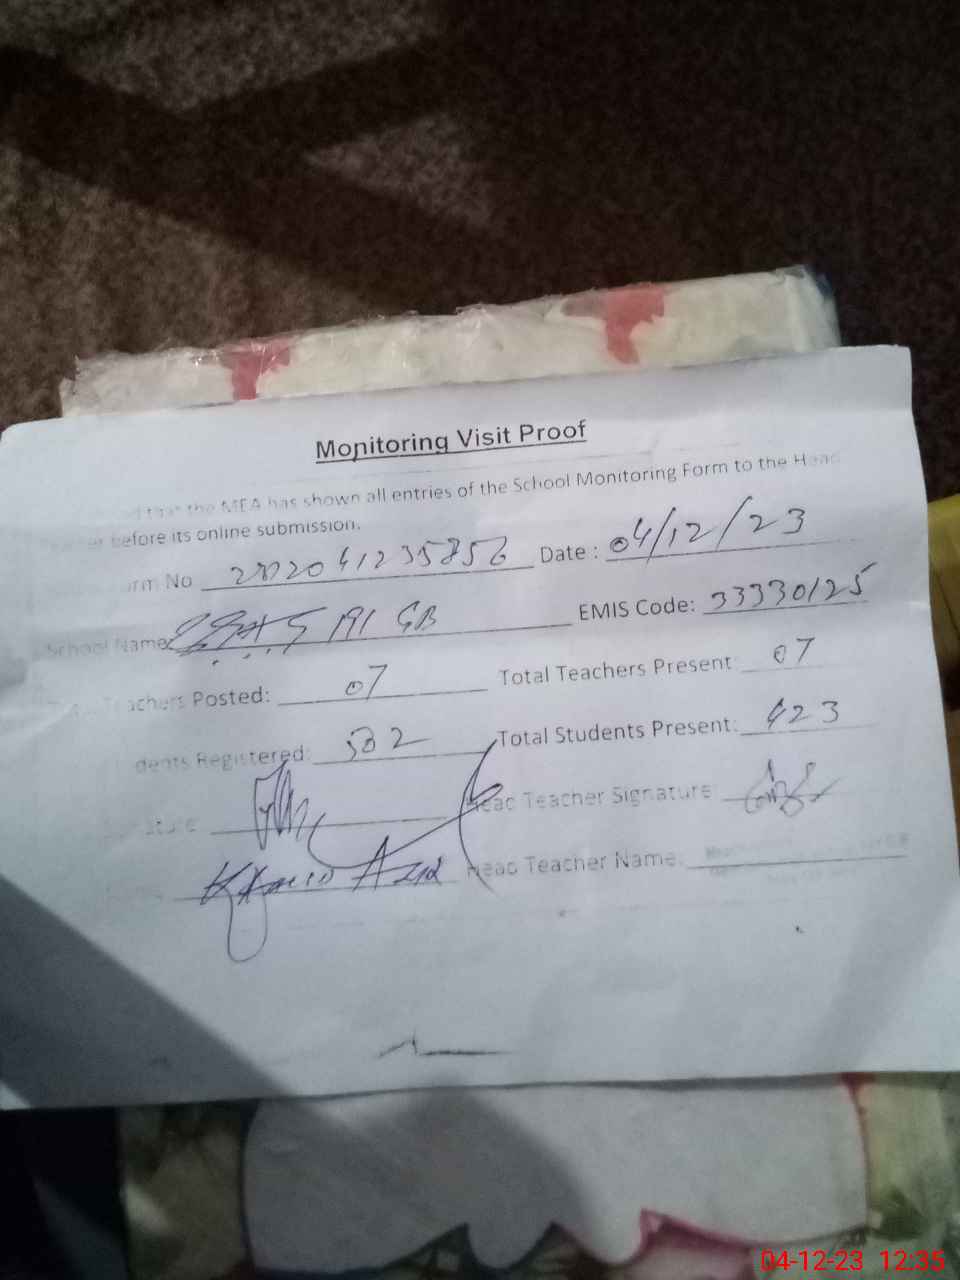 Monitoring Visit Proof
that the MEA has shown all entries of the School Monitoring Form to the Head
before its online submission.
orm No Date : 04/12/23
School Name: 191 GB EMIS Code: 33330125
Teachers Posted: 07 Total Teachers Present: 07
dents Registered: 502 Total Students Present: 423
Head Teacher Signature:
Azid Head Teacher Name:
04-12-23 12:35